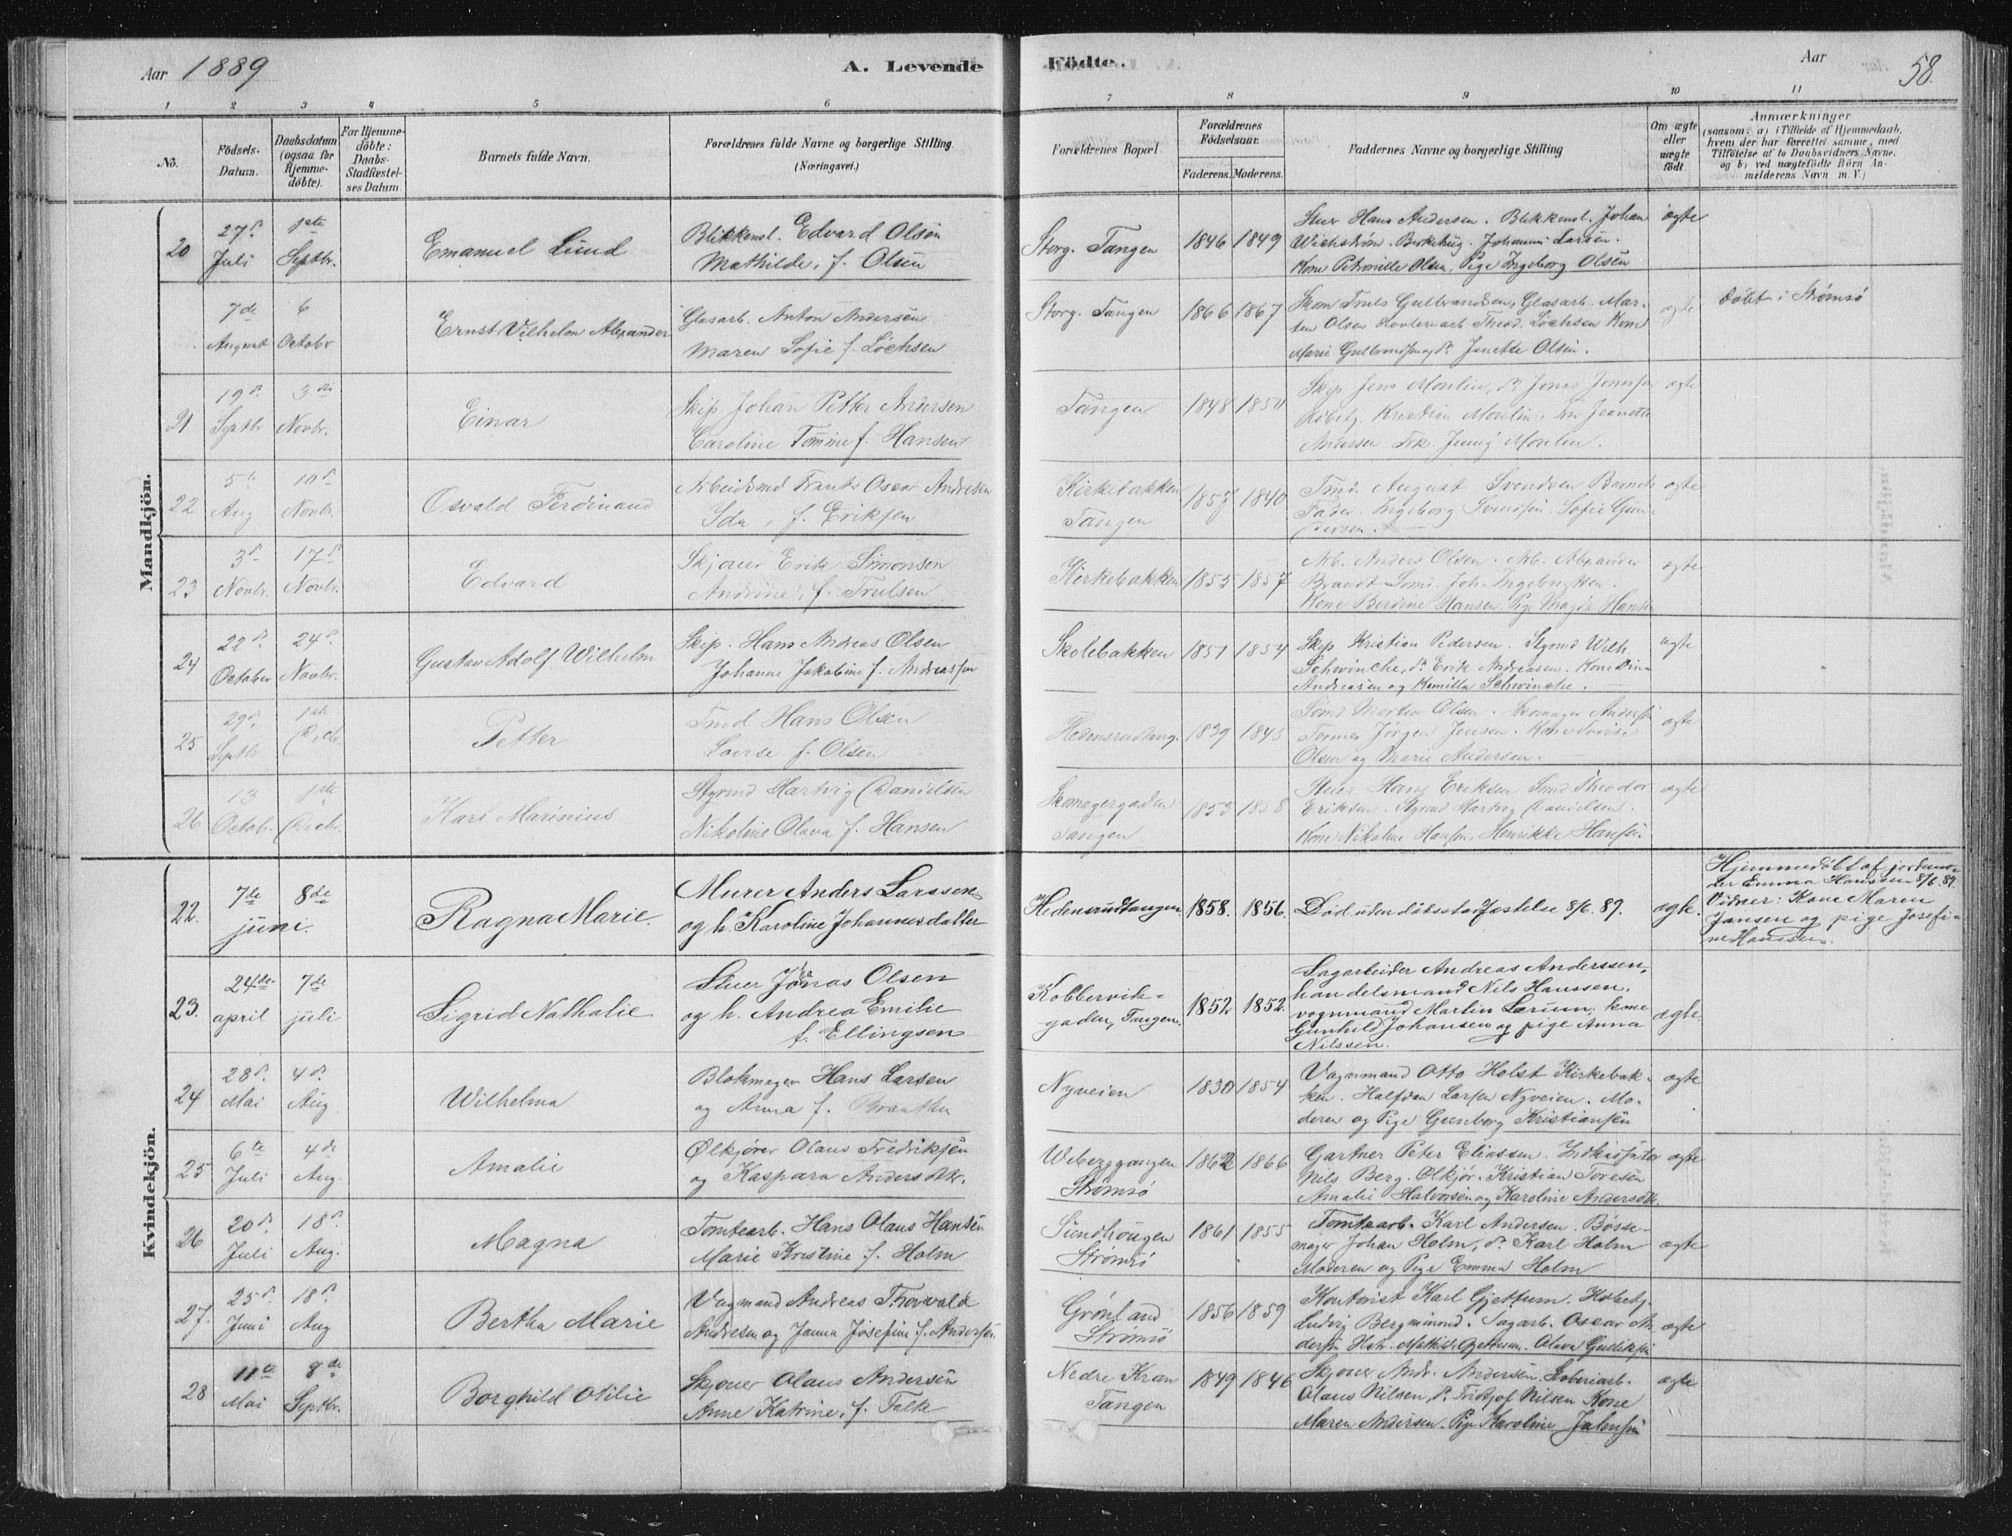 Aar 1889
A. Levende
Födte.
Aar
58.
1 2 3 4 5 6 7 8 9 10 11
No.
Födsels-
Datum.
Daabsdatum
(ogsaa for
Hjemme-
døbte).
For Hjemme-
döbte:
Daabs-
Stadfæstel-
ses Datum
Barnets fulde Navn.
Forældrenes fulde Navne og borgerlige Stilling
(Næringsvei.)
Forældrenes Bopæl.
Forældrenes
Födselsaar.
Faderens. Moderens.
Faddernes Navne og borgerlige Stilling
Om ægte
eller
uægte
födt.
Anmærkninger
(saasom: a) i Tilfælde af Hjemmedaab,
hvem der har forrettet samme, med
Tilföielse af to Daabsvidners Navne,
og b) ved uægtefödte Börn An-
melderens Navn m. V.)
Mandkjön.
20
27d.
Juli
1ste
Septbr.
Emanuel Lund
Blikkensl. Edvard Olsen
Mathilde, f. Olsen
Storg. Tangen
1846 1849
Stuer Hans Andersen. Blikkensl. Johan
Wichstrøm. Johannes Larsen.
Kone Petronille Olsen, Pige Ingeborg Olsen
ægte
7de
August
6
Octobr
Ernst Vilhelm Alexander
Glasarb. Anton Andersen
Maren Sofie f. Løchsen
Storg. Tangen
1866 1867
Skom Truls Gulbrandsen, Glasarb. Mar-
ten Olsen Theod. Løchsen Kone
Marie Gulbrandsen og do Janette Olsen.
ægte
Døbt i Strømsø
21
19d
Septbr
3die
Novbr.
Einar
Skip Johan Petter Andersen
Caroline Tomine f. Hansen
Tangen
1848 1850
Skip Jens Moulin, do Jonas
Kristian Moulin. Jeanette
Andersen Frk. Jenny Moulin.
ægte
22
5te
Aug
10d
Novbr.
Osvald Ferdinand
Arbeidsmd Frants Oscar Andresen
Ida, f. Eriksen
Kirkebakken
Tangen
1857 1840
Tmd. August Svendsen Barnets
Fader. Ingeborg Svendsen. Sofie Gun-
ægte
23
3d
Novbr.
17d
Novbr.
Edvard
Skjouer Erik Simonsen
Andrine, f. Trulsen
Kirkebakken
1855 1857
Arb. Anders Olsen. Arb. Alexander
Brandt Smd. Joh. Ingebrigtsen.
Kone Berdine Hansen. Pige Magda Hansen
ægte
24
22d
October
24d.
Novbr.
Gustav Adolf Wilhelm
Skip. Hans Andreas Olsen
Johanne Jakobine f. Andreassen
Skolebakken
1851 1854
Skip Kristian Pedersen. Stymd Wilh.
Schwincke, do Erik Andreasen. Kone Dina
Andreasen og Kamilla Schwincke.
ægte
25
29d.
Septbr.
1ste
Decbr.
Petter
Tmd Hans Olsen
Lovise f. Olsen
Hedensrudtang.
1839 1845
Smd Morten Olsen. Skomager Andersen
Former Jørgen Jensen. Kone Lovise
Olsen og Marie Andersen.
ægte
26
13
Octob.
1ste
Decbr.
Karl Marinius
Stymd Hartvig Danielsen
Nikoline Olava f. Hansen
Skomagergaden
Tangen
1853 1858
Stuer Hans Eriksen Smd Theodor
Eriksen. Stymd Hartvig Danielsen.
Kone Nikoline Hansen. Henrikke Hansen.
ægte
Kvindekjön.
22.
7de
juni.
8de
Ragna Marie.
Murer Anders Larssen
og h. Karoline Johannesdatter
Hedensrudtangen
1858. 1856.
Død uden dåbsstadfæstelse 8/6 89.
ægte.
Hjemmedøbt af jordmo-
der Emma Hanssen 8/6 89.
Vidner: Kone Maren
Jansen og pige Josefi-
ne Hanssen.
23.
24de
april
7de
juli
Sigrid Nathalie
Stuer Jonas Olsen
og h. Andrea Emilie
f. Ellingsen
Kobbervik-
gaden, Tangen.
1852 1852.
Sagarbeider Andreas Anderssen,
handelsmand Nils Hanssen,
vognmand Martin Larum, kone
Gunhild Johansen og pige Anna
Nilssen.
ægte.
24
28d.
Mai
4d.
Aug.
Wilhelma
Blokmager Hans Larsen
og Anna f. Braathen
Nyveien
1830 1854
Vognmand Otto Holst Kirkebak-
ken. Halfdan Larsen Nyveien. Mo-
deren og Pige Gunborg Kristiansen
ægte
25
6te
Juli
4de
Aug.
Amalie
Ølkjører Olaus Fredriksen
og Kaspara Andersdtr.
Webergangen
Strømsø
1862 1866
Gartner Peter Eliassen.
Nils Berg. Ølkjør. Kristian Toresen
Amalie Halvorsen og Karoline Andersdtr.
ægte
26
20d
Juli
18d.
Aug.
Magna
Tomtearb. Hans Olaus Hansen
Marie Kristine f. Holm
Sundhougen
Strømsø
1861 1855
Tomtearb. Karl Andersen. Bøsse-
mager Johan Holm, do Karl Holm
Moderen og Pige Emma Holm
ægte
27.
25d.
Juni
18d.
Aug
Bertha Marie
Vognmand Andreas Thorvald
Andresen og Janna Josefine f. Andersen
Grønland
Strømsø
1856 1859
Kontorist Karl Gjettum.
Ludvig Bergmind. Sagarb. Oscar An-
dersen Mathilde Gjettum. Olava Gulliksen
ægte
28
11te
Mai
8de
Septbr.
Borghild Otilie
Skjouer Olaus Andersen
Anne Katrine, f. Falk
Nedre Kran
Tangen
1849 1846
Skjouer Andr. Andersen,
Olaus Nilsen, do Fridtjof Nilsen Kone
Maren Andersen. Pige Karoline Johnsen
ægte